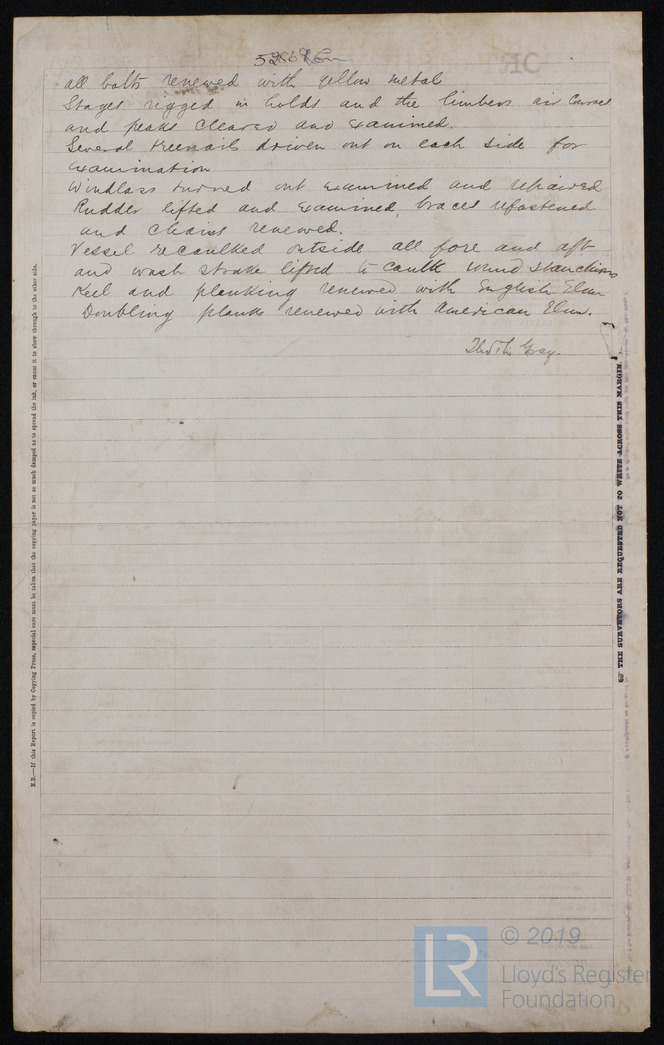 all bolts renewed with yellow metal
Stages rigged in holds and the limbers air course
and peaks cleared and examined.
Several treenails driven out on each side for
examination
Windlass turned out examined and repaired
Rudder lifted and examined, braces refastened
and chains renewed.
Vessel recaulked outside all fore and aft
and wash strake lifted to caulk round stanchions
Keel and planking renewed with English Elm
Doubling plank renewed with American Elm.
Gray.
N.B.—If this Report is copied by Copying Press, especial care must be taken that the copying paper is not so much damped as to spread the ink, or cause it to show through to the other side.
THE SURVEYORS ARE REQUESTED NOT TO WRITE ACROSS THIS MARGIN.
LR
© 2019
Lloyd's Register
Foundation